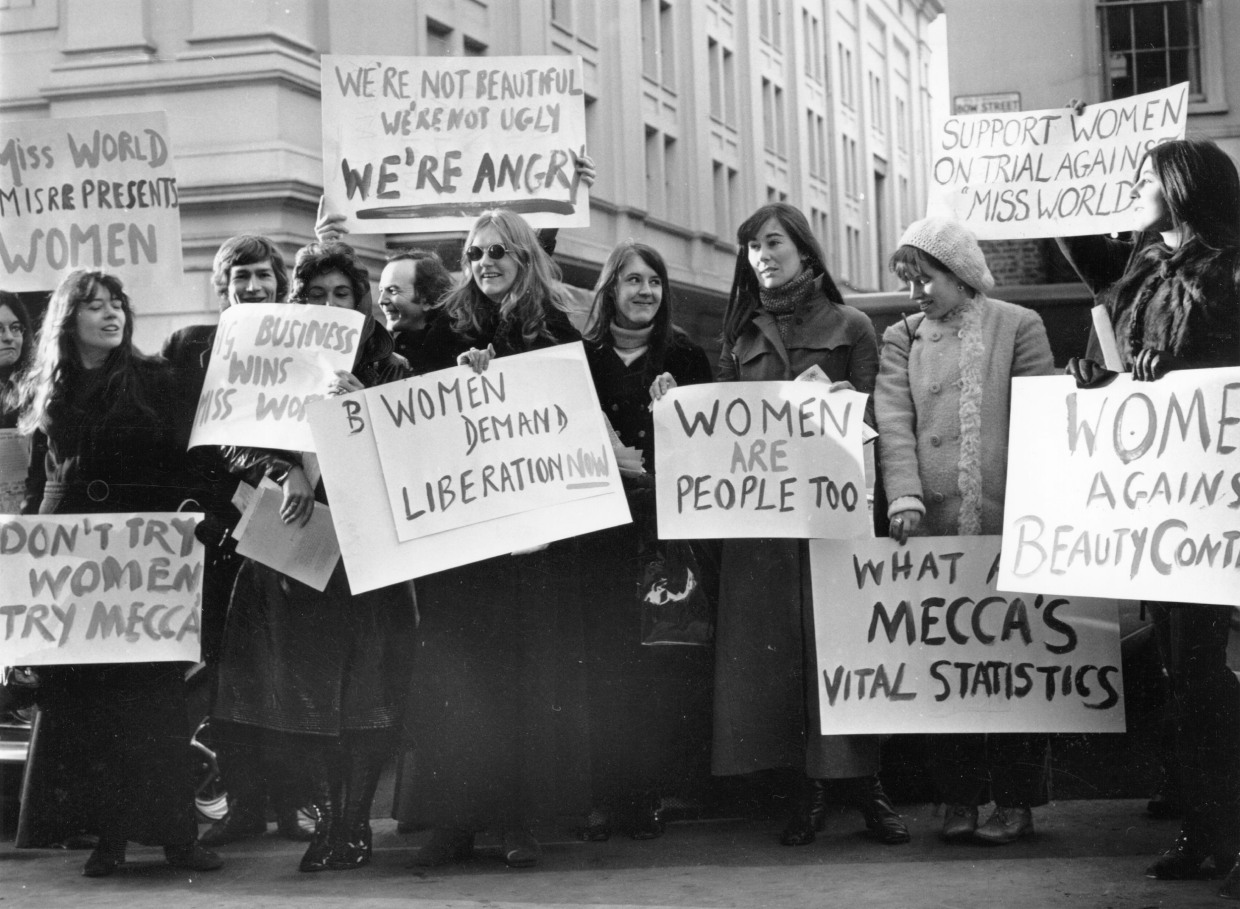 MISS WORLD
MISREPRESENTS
WOMEN
WE'RE NOT BEAUTIFUL
WE'RE NOT UGLY
WE'RE ANGRY
BOW STREET
SUPPORT WOMEN
ON TRIAL AGAINST
"MISS WORLD"
BUSINESS
WINS
MISS
B
WOMEN
DEMAND
LIBERATION NOW
WOMEN
ARE
PEOPLE TOO
AGAINS
BEAUTY CONT
DON'T TRY
WOMEN
TRY MECCA
WHAT A
MECCA'S
VITAL STATISTICS